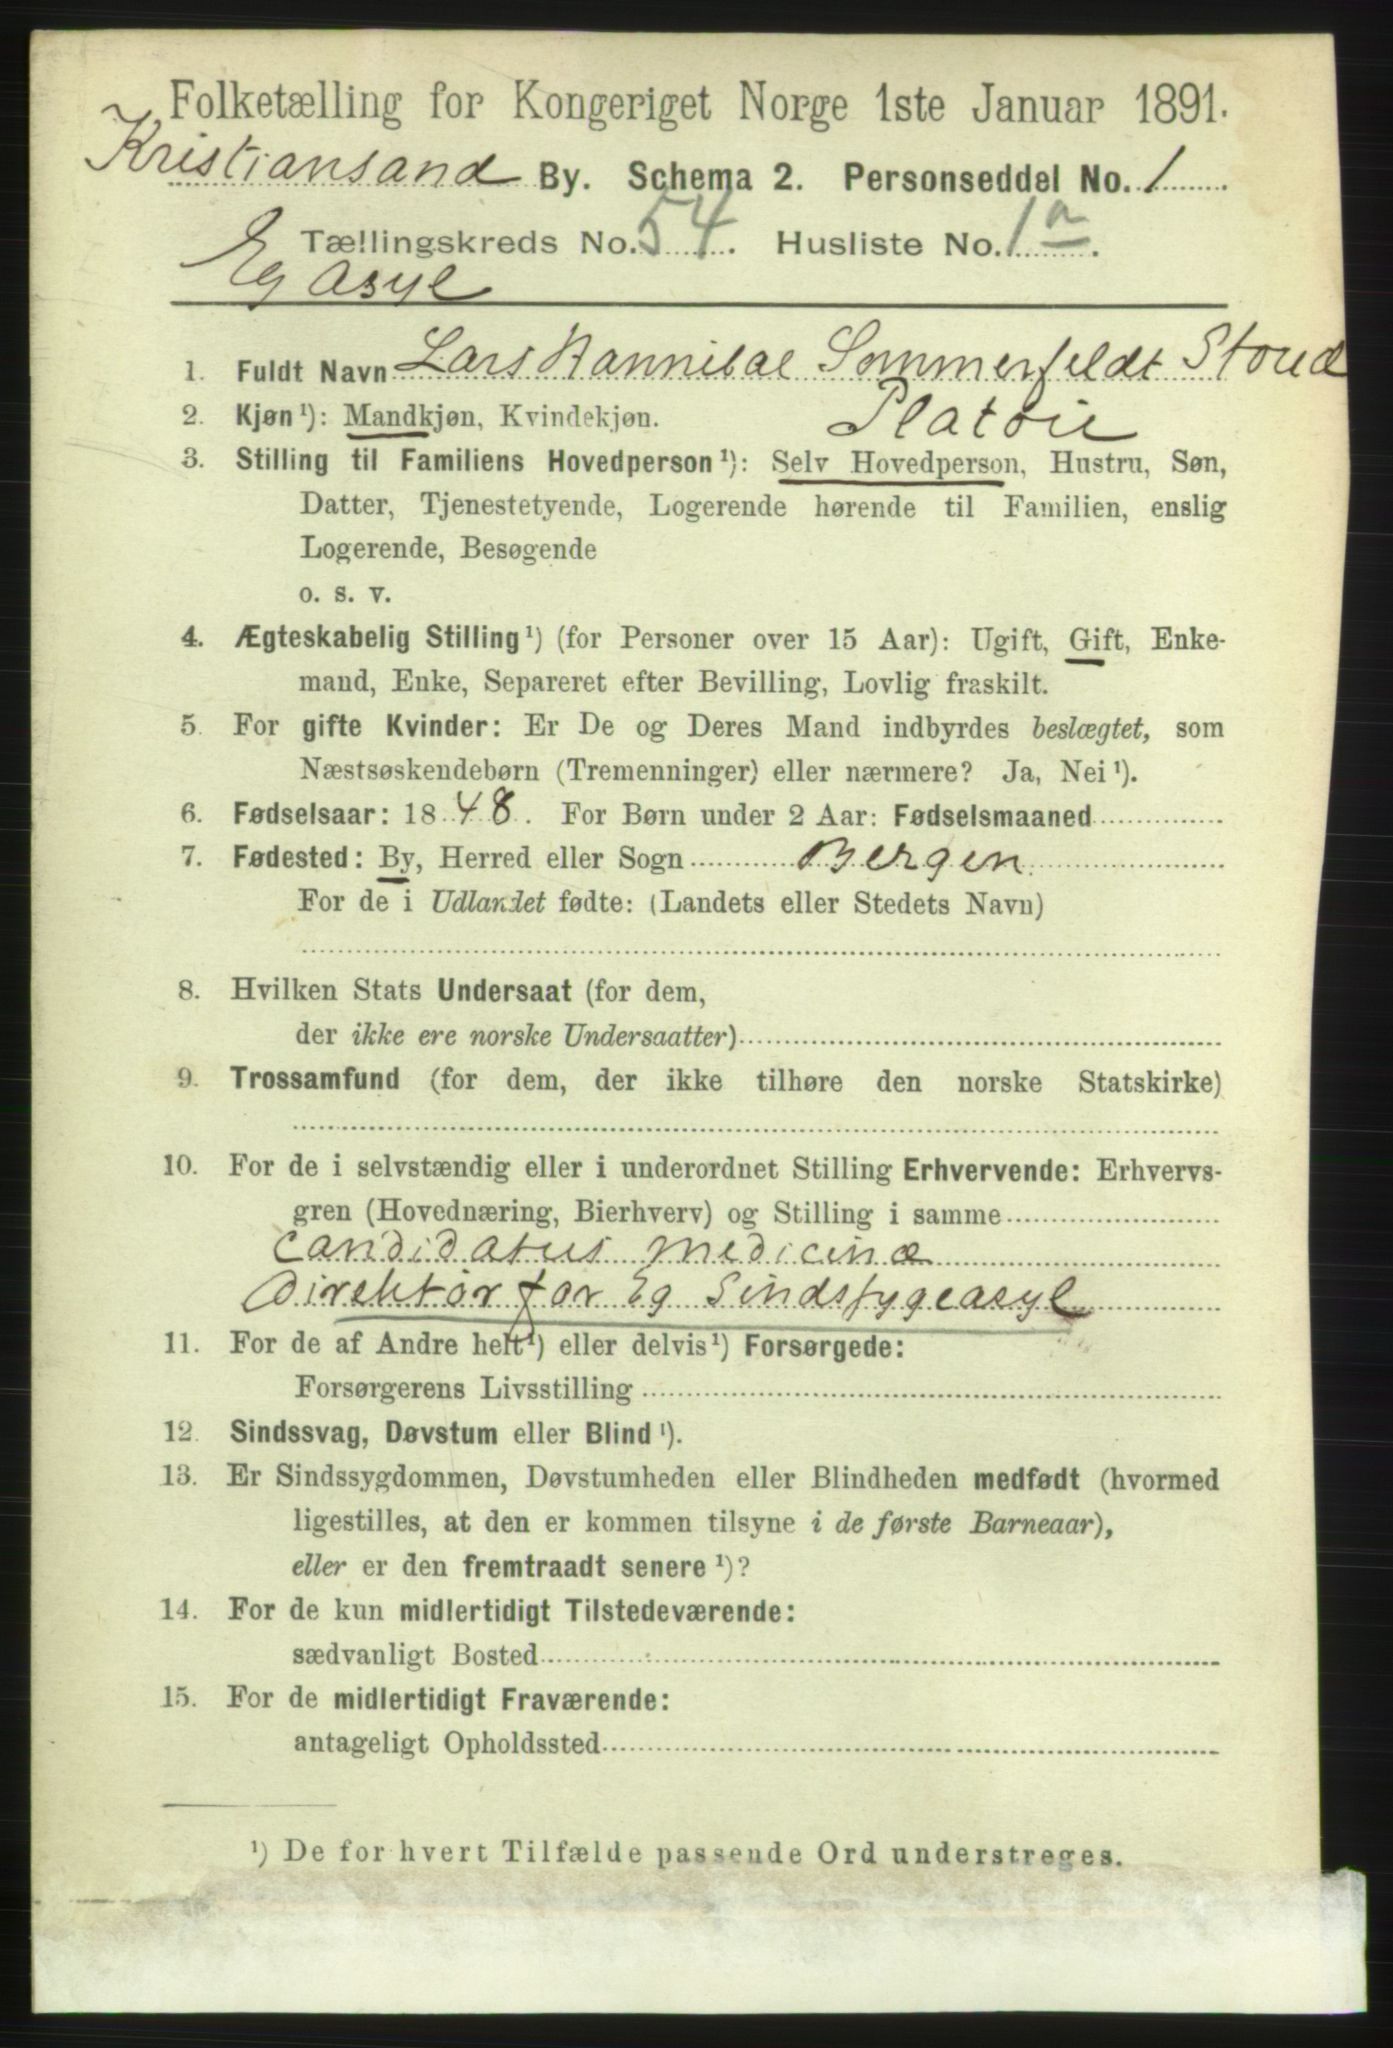 Folketælling for Kongeriget Norge 1ste Januar 1891.
Kristiansand By. Schema 2. Personseddel No. 1
Tællingskreds No. 54. Husliste No. 1a.
Eg Asyl
1. Fuldt Navn Lars Hannibal Sommerfeldt Stoud
Platou
2. Kjøn¹): Mandkjøn, Kvindekjøn.
3. Stilling til Familiens Hovedperson¹): Selv Hovedperson, Hustru, Søn,
Datter, Tjenestetyende, Logerende hørende til Familien, enslig
Logerende, Besøgende
o. s. v.
4. Ægteskabelig Stilling¹) (for Personer over 15 Aar): Ugift, Gift, Enke-
mand, Enke, Separeret efter Bevilling, Lovlig fraskilt.
5. For gifte Kvinder: Er De og Deres Mand indbyrdes beslægtet, som
Næstsøskendebørn (Tremenninger) eller nærmere? Ja, Nei¹).
6. Fødselsaar: 1848. For Børn under 2 Aar: Fødselsmaaned
7. Fødested: By, Herred eller Sogn Bergen
For de i Udlandet fødte: (Landets eller Stedets Navn)
8. Hvilken Stats Undersaat (for dem,
der ikke ere norske Undersaatter)
9. Trossamfund (for dem, der ikke tilhøre den norske Statskirke)
10. For de i selvstændig eller i underordnet Stilling Erhvervende: Erhvervs-
gren (Hovednæring, Bierhverv) og Stilling i samme
candidatus medicinæ
Direktør for Eg Sindssygeasyl
11. For de af Andre helt¹) eller delvis¹) Forsørgede:
Forsørgerens Livsstilling
12. Sindssvag, Døvstum eller Blind¹).
13. Er Sindssygdommen, Døvstumheden eller Blindheden medfødt (hvormed
ligestilles, at den er kommen tilsyne i de første Barneaar),
eller er den fremtraadt senere¹)?
14. For de kun midlertidigt Tilstedeværende:
sædvanligt Bosted
15. For de midlertidigt Fraværende:
antageligt Opholdssted
¹) De for hvert Tilfælde passende Ord understreges.